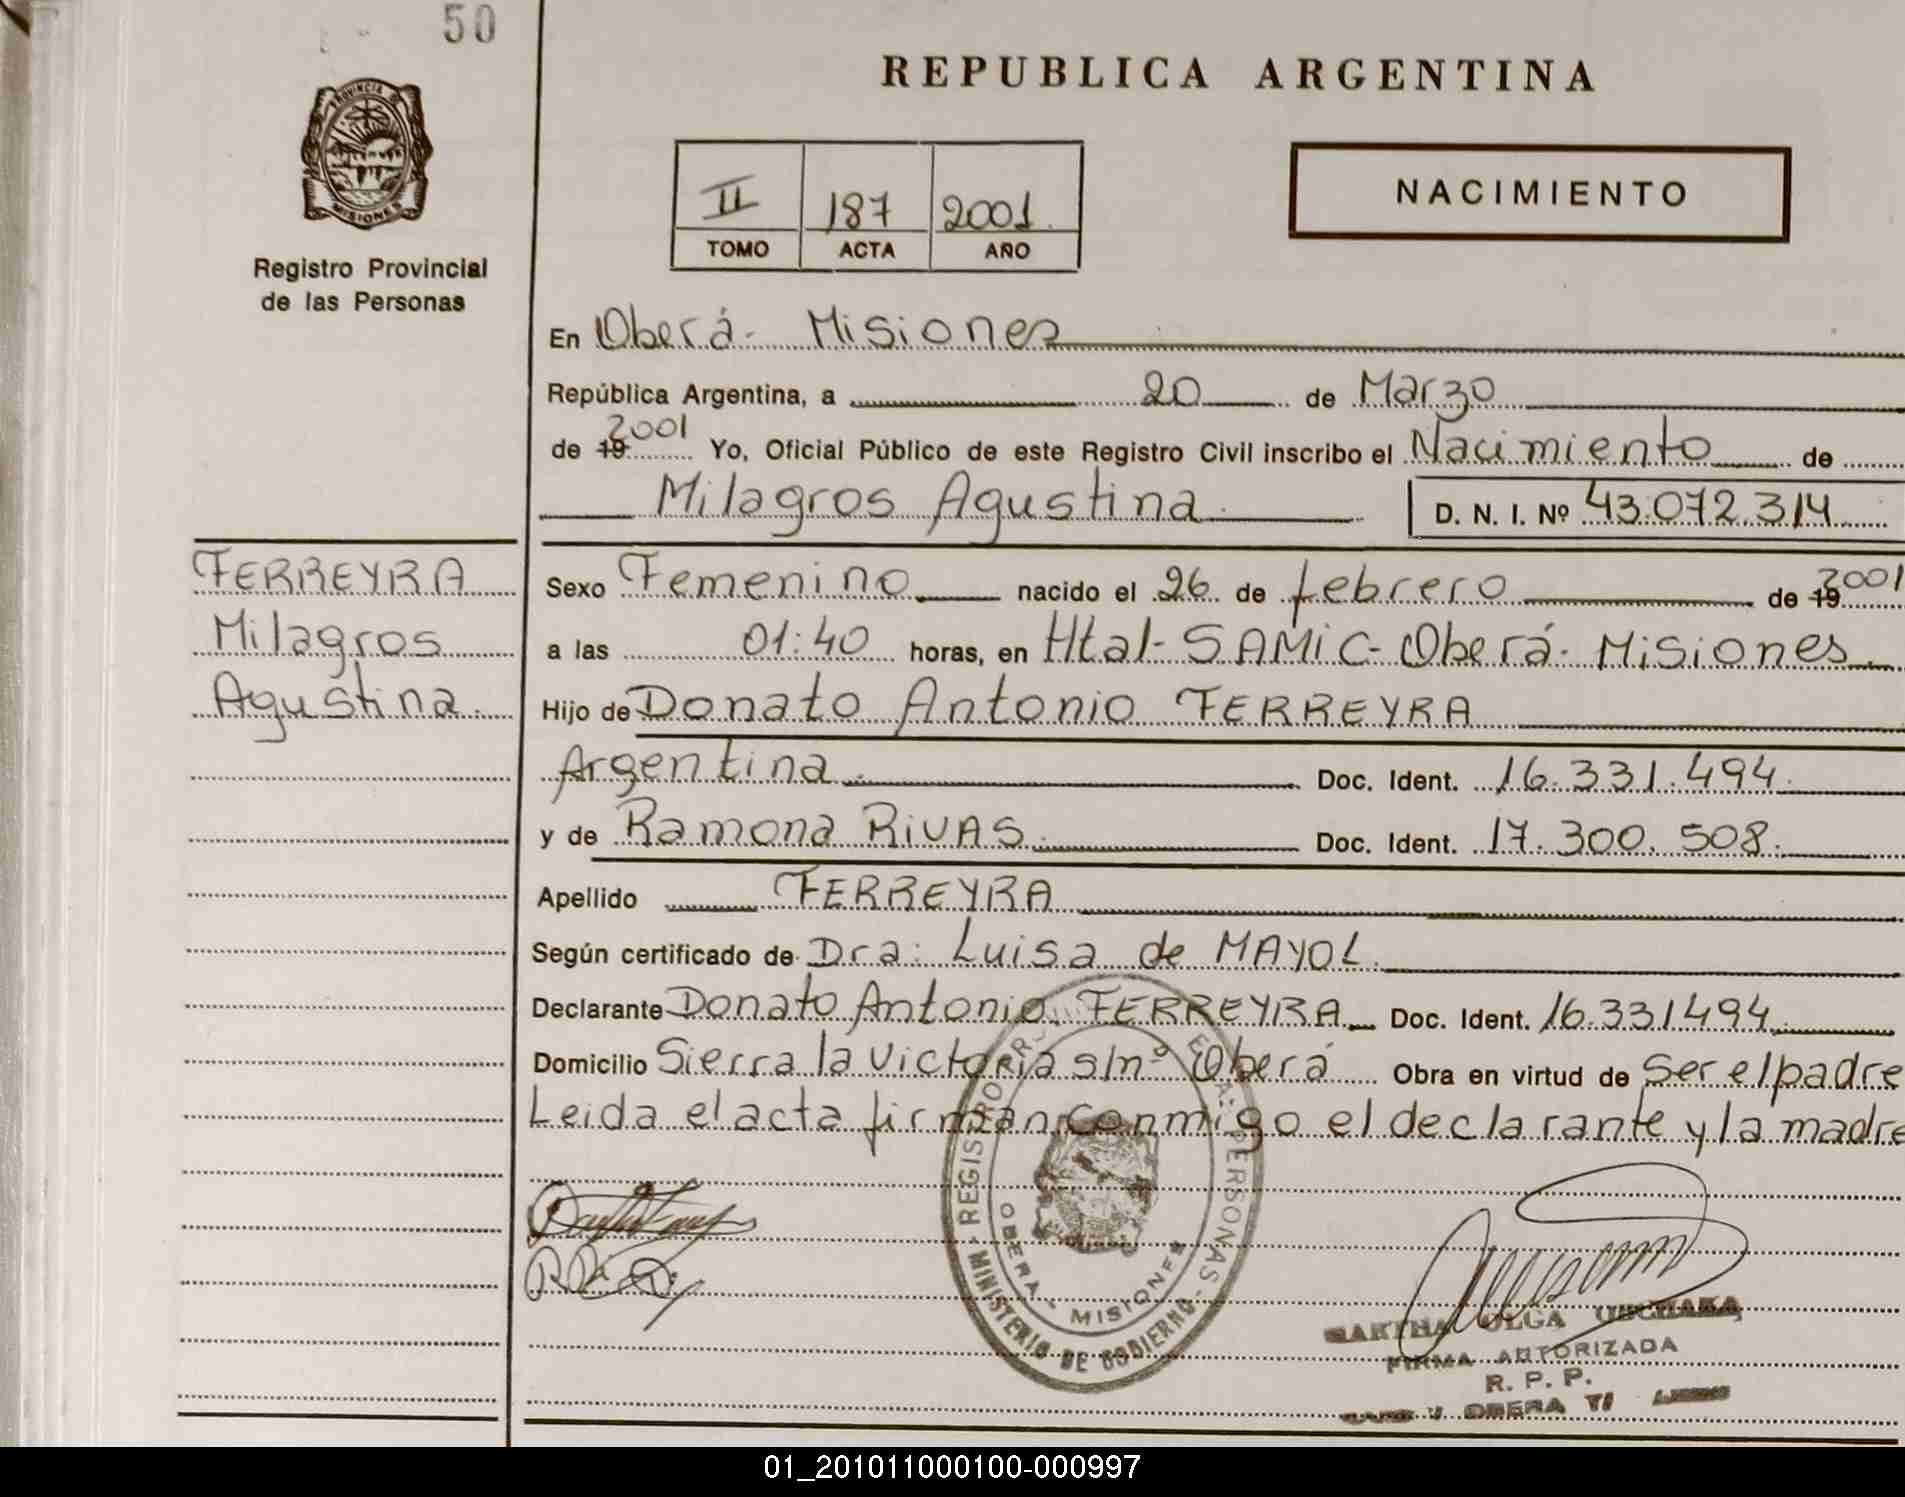 50
REPUBLICA ARGENTINA
PROVINCIA DE
MISIONES
Registro Provincial
de las Personas
II 187 2001
TOMO ACTA AÑO
NACIMIENTO
En Oberá- Misiones
República Argentina, a 20 de Marzo
de 19 2001 Yo, Oficial Público de este Registro Civil inscribo el Nacimiento de
Milagros Agustina D. N. I. Nº 43.072.314
FERREYRA
Milagros
Agustina.
Sexo Femenino nacido el 26 de febrero de 19 2001
a las 01:40 horas, en Htal- SAMIC- Oberá- Misiones
Hijo de Donato Antonio FERREYRA
Argentina Doc. Ident. 16.331.494.
y de Ramona RIVAS. Doc. Ident. 17.300.508.
Apellido FERREYRA
Según certificado de Dra: Luisa de MAYOL.
Declarante Donato Antonio FERREYRA Doc. Ident. 16.331494
Domicilio Sierra la Victoria s/nº Oberá Obra en virtud de Ser el padre
Leida el acta firman conmigo el declarante y la madre
OBERA - MISIONES
MINISTERIO DE GOBIERNO
MARTHA OLGA
FIRMA AUTORIZADA
R. P. P.
OBERA
01_201011000100-000997